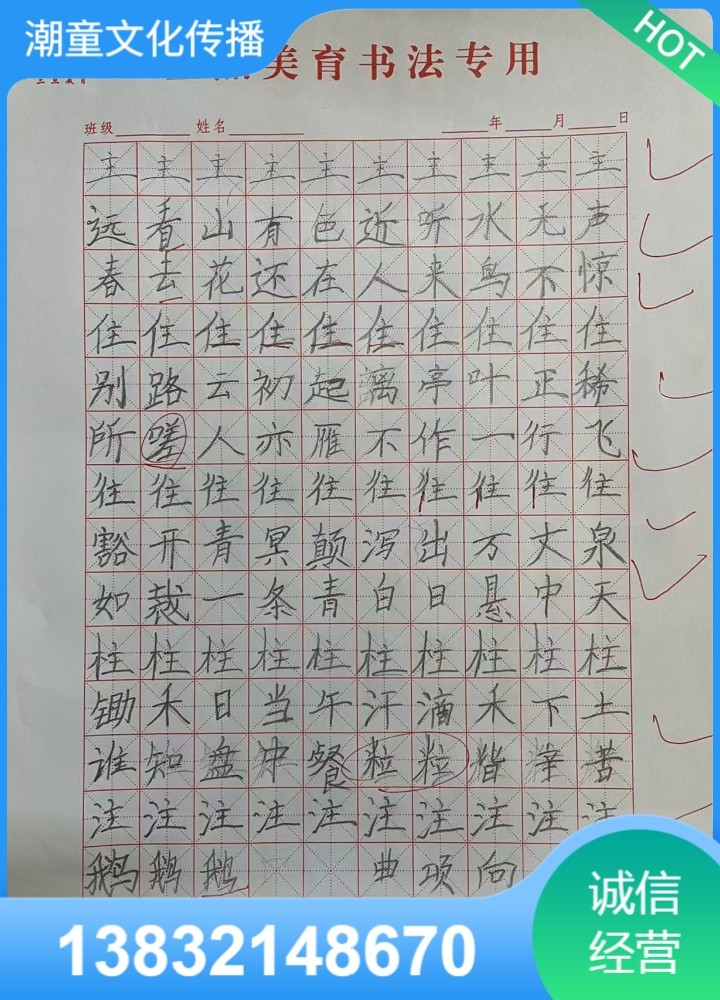 潮童文化传播
HOT
美育书法专用
班级 姓名 年 月 日
主主主主主主主主主主
远看山有色近听水无声
春去花还在人来鸟不惊
住住住住住住住住住住
别路云初起离亭叶正稀
所嗟人亦雁不作一行飞
往往往往往往往往往往
豁开青冥颠泻出万丈泉
如裁一条青白日悬中天
柱柱柱柱柱柱柱柱柱柱
锄禾日当午汗滴禾下土
谁知盘中餐粒粒皆辛苦
注注注注注注注注注注
鹅鹅鹅 曲项向
诚信
经营
13832148670